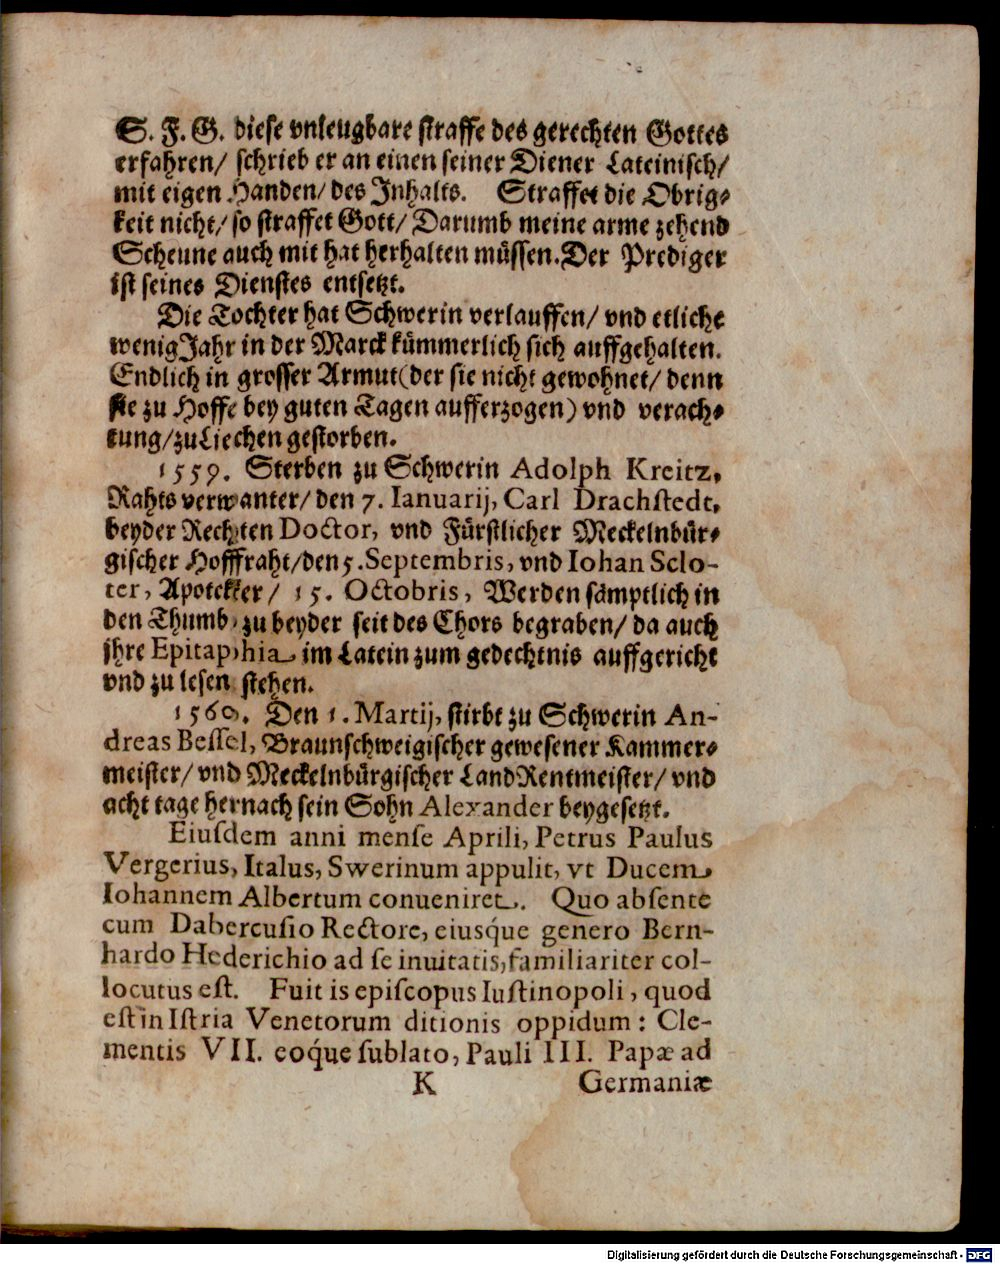 S. F. G. diese vnleugbare straffe des gerechten Gottes
erfahren/ schrieb er an einen seiner Diener Lateinisch/
mit eigen Handen/ des Inhalts. Straffet die Obrig-
keit nicht/ so straffet Gott/ Darumb meine arme zehend
Scheune auch mit hat herhalten müssen. Der Prediger
ist seines Dienstes entsetzt.
Die Tochter hat Schwerin verlauffen/ vnd etliche
wenig Jahr in der Marck kümmerlich sich auffgehalten.
Endlich in grosser Armut (der sie nicht gewohnet/ denn
sie zu Hoffe bey guten Tagen aufferzogen) vnd verach-
tung/ zu Liechen gestorben.
1559. Sterben zu Schwerin Adolph Kreitz,
Rahts verwanter/ den 7. Ianuarij, Carl Drachstedt,
beyder Rechten Doctor, vnd Fürstlicher Meckelnbür-
gischer Hofffraht/ den 5. Septembris, vnd Iohan Sclo-
ter, Apotekker/ 15. Octobris, Werden sämptlich in
den Thumb, zu beyder seit des Chors begraben/ da auch
jhre Epitaphia im Latein zum gedechtnis auffgericht
vnd zu lesen stehen.
1560. Den 1. Martij, stirbt zu Schwerin An-
dreas Bessel, Braunschweigischer gewesener Kammer-
meister/ vnd Meckelnbürgischer LandRentmeister/ vnd
acht tage hernach sein Sohn Alexander beygesetzt.
Eiusdem anni mense Aprili, Petrus Paulus
Vergerius, Italus, Swerinum appulit, vt Ducem
Iohannem Albertum conueniret. Quo absente
cum Dabercusio Rectore, eiusq́ue genero Bern-
hardo Hederichio ad se inuitatis, familiariter col-
locutus est. Fuit is episcopus Iustinopoli, quod
est in Istria Venetorum ditionis oppidum: Cle-
mentis VII. eoq́ue sublato, Pauli III. Papæ ad
K Germaniæ
Digitalisierung gefördert durch die Deutsche Forschungsgemeinschaft - DFG